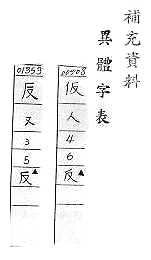 補充資料
異體字表
00708
仮
人
4
6
反▲
01353
反
又
3
5
反▲